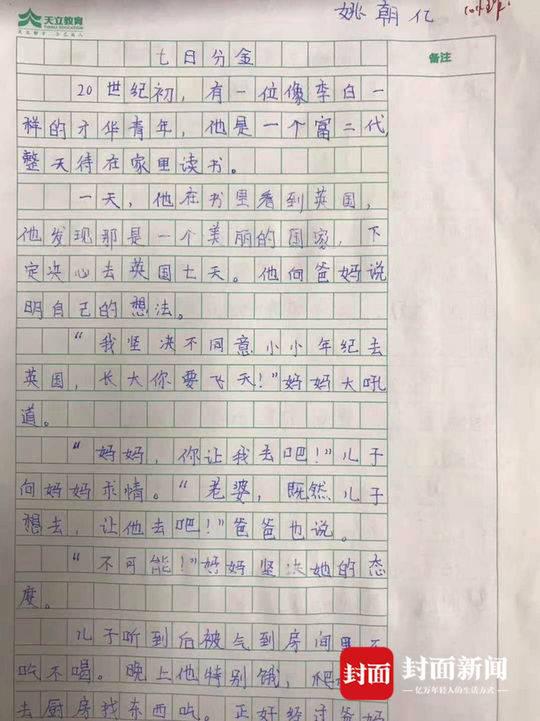 天立教育
TIANLI EDUCATION
姚朝亿
备注
七日分金
20世纪初，有一位像李白一
样的才华青年，他是一个富二代
整天待在家里读书。
一天，他在书里看到英国，
他发现那是一个美丽的国家，下
定决心去英国七天。他向爸妈说
明自己的想法。
“我坚决不同意小小年纪去
英国，长大你要飞天！”妈妈大吼
道。
“妈妈，你让我去吧！”儿子
向妈妈求情。“老婆，既然儿子
想去，让他去吧！”爸爸也说。
“不可能！”妈妈坚决她的态
度。
儿子听到后被气到房间里不
吃不喝。晚上他特别饿，爬
去厨房找东西吃。正好经过爸妈
封面
封面新闻
亿万年轻人的生活方式